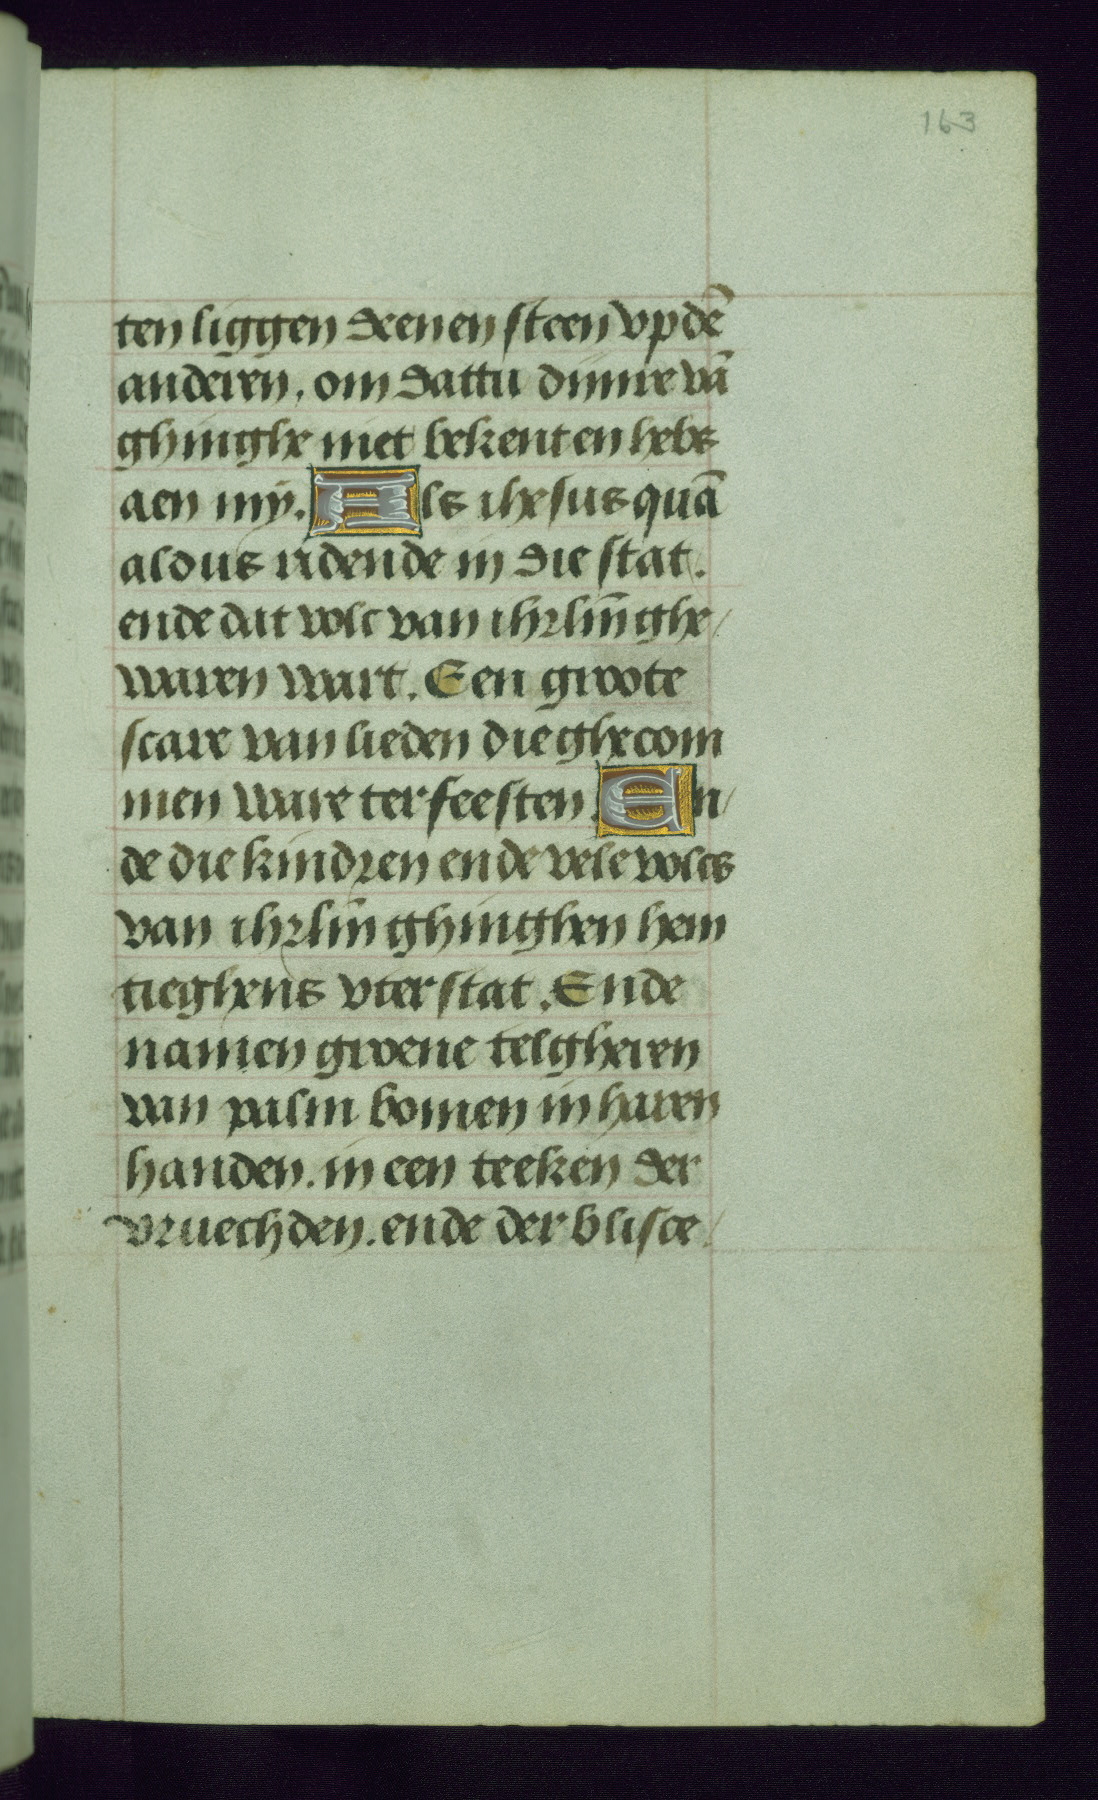 163
ten liggen deenen steen vp dē
anderen. om dattu dinire vā
ghinghe niet bekent en hebs
aen my. Als ihesus quā
aldus ridende in die stat.
ende dat volc van ihrlīn ghe/
waren wart. Een groote
scare van lieden die ghecom
men ware ter feesten. En/
de die kindren ende vele volcs
van ihrlīn ghinghen hem
tieghens vter stat. Ende
namen groene telgheren
van palm bomen in haren
handen. in een teeken der
vruechden. ende der blisce/